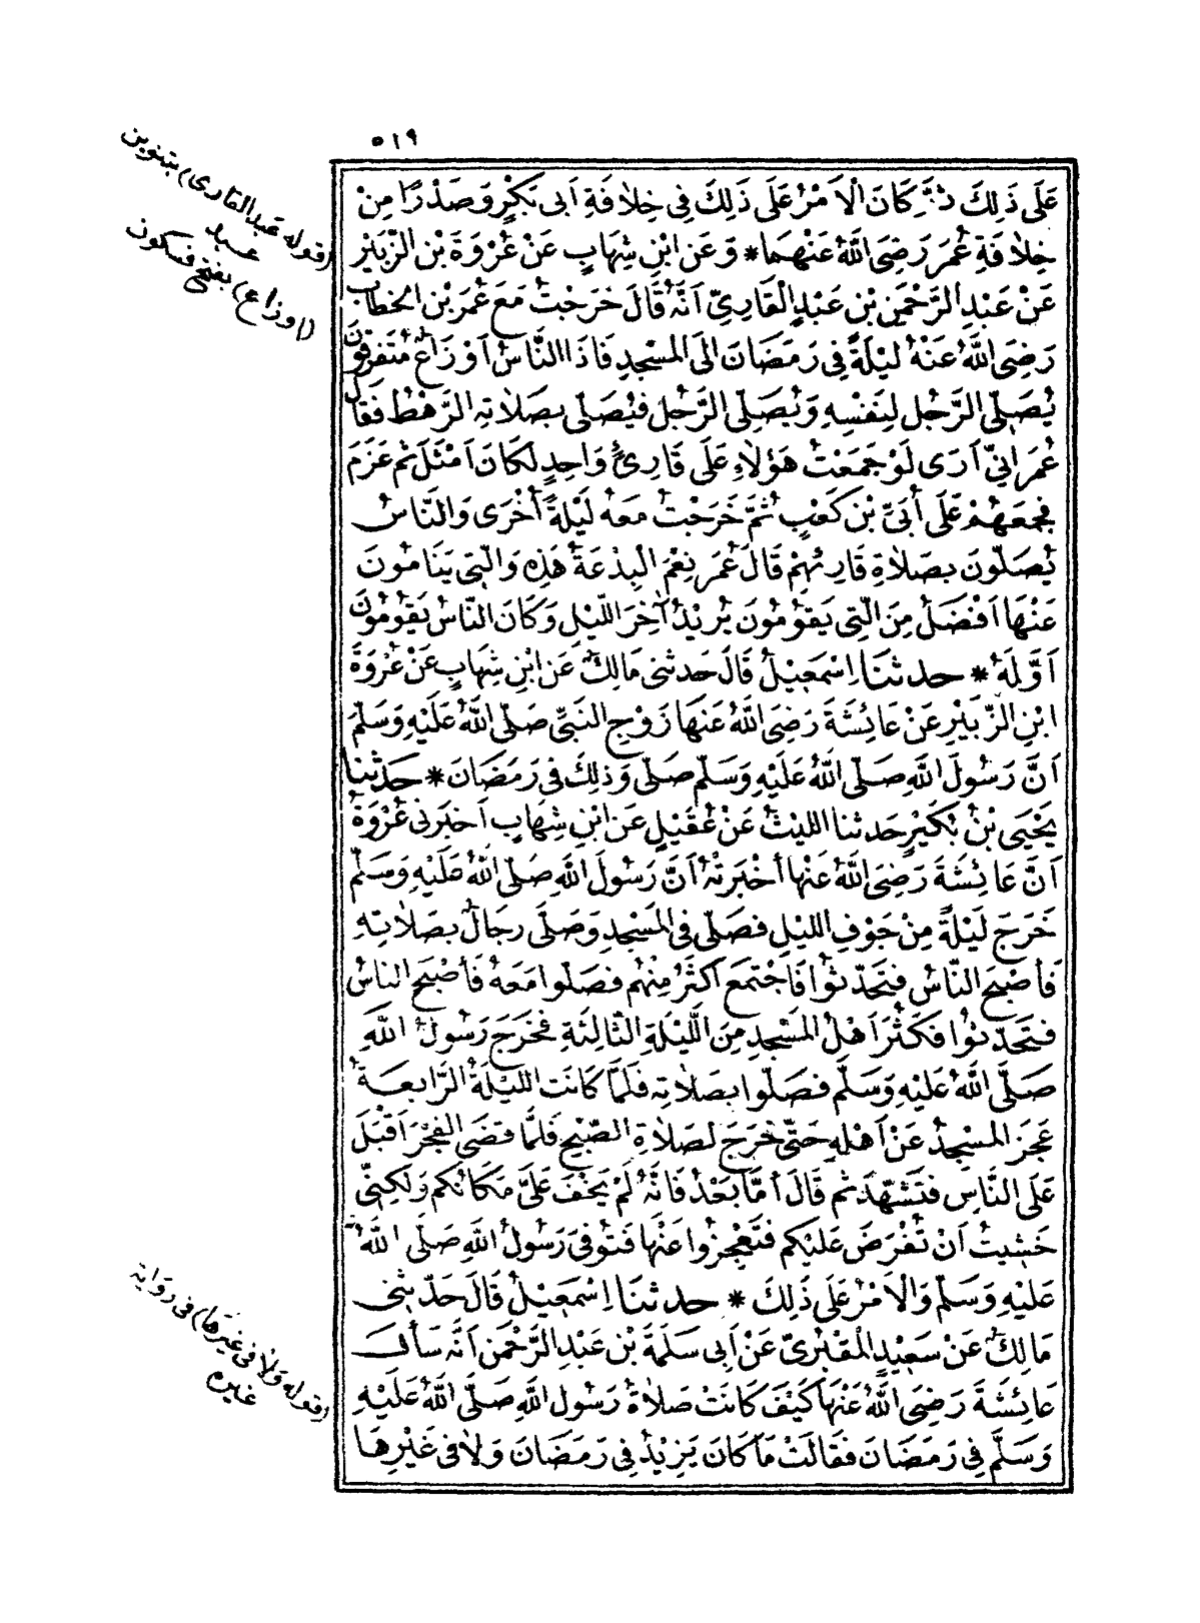 ٥١٩
عَلَى ذَلِكَ ثُمَّ كَانَ الْاَمْرُ عَلَى ذَلِكَ فِى خِلَافَةِ اَبِى بَكْرٍ وَصَدْرًا مِنْ
خِلَافَةِ عُمَرَ رَضِىَ اللَّهُ عَنْهُمَا * وَعَنِ ابْنِ شِهَابٍ عَنْ عُرْوَةَ بْنِ الزُّبَيْرِ
عَنْ عَبْدِ الرَّحْمَنِ بْنِ عَبْدٍ الْقَارِىِّ اَنَّهُ قَالَ خَرَجْتُ مَعَ عُمَرَ بْنِ الْخَطَّابِ
رَضِىَ اللَّهُ عَنْهُ لَيْلَةً فِى رَمَضَانَ اِلَى الْمَسْجِدِ فَاِذَا النَّاسُ اَوْزَاعٌ مُتَفَرِّقُونَ
يُصَلِّى الرَّجُلُ لِنَفْسِهِ وَيُصَلِّى الرَّجُلُ فَيُصَلِّى بِصَلَاتِهِ الرَّهْطُ فَقَالَ
عُمَرُ اِنِّى اَرَى لَوْ جَمَعْتُ هَؤُلَاءِ عَلَى قَارِئٍ وَاحِدٍ لَكَانَ اَمْثَلَ ثُمَّ عَزَمَ
فَجَمَعَهُمْ عَلَى اُبَىِّ بْنِ كَعْبٍ ثُمَّ خَرَجْتُ مَعَهُ لَيْلَةً اُخْرَى وَالنَّاسُ
يُصَلُّونَ بِصَلَاةِ قَارِئِهِمْ قَالَ عُمَرُ نِعْمَ الْبِدْعَةُ هَذِهِ وَالَّتِى يَنَامُونَ
عَنْهَا اَفْضَلُ مِنَ الَّتِى يَقُومُونَ يُرِيْدُ آخِرَ اللَّيْلِ وَكَانَ النَّاسُ يَقُومُونَ
اَوَّلَهُ * حدثنا اِسْمَعِيْلُ قَالَ حَدثنى مَالِكٌ عَنِ ابْنِ شِهَابٍ عَنْ عُرْوَةَ
ابْنِ الزُّبَيْرِ عَنْ عَائِشَةَ رَضِىَ اللَّهُ عَنهَا زَوْجِ النَّبِىِّ صَلَّى اللَّهُ عَلَيْهِ وَسَلَّمَ
اَنَّ رَسُولَ اللَّهِ صَلَّى اللَّهُ عَلَيْهِ وَسَلَّمَ صَلَّى وَذَلِكَ فِى رَمَضَانَ * حَدثنا
يَحْيَى بْنُ بُكَيْرٍ حَدثنا اللَّيْثُ عَنْ عُقَيْلٍ عَنِ ابْنِ شِهَابٍ اَخبَرَنِى عُرْوَةُ
اَنَّ عَائِشَةَ رَضِىَ اللَّهُ عَنْهَا اَخْبَرَتْهُ اَنَّ رَسُولَ اللَّهِ صَلَّى اللَّهُ عَلَيْهِ وَسَلَّمَ
خَرَجَ لَيْلَةً مِنْ جَوْفِ اللَّيلِ فَصَلَّى فِى الْمَسْجِدِ وَصَلَّى رِجَالٌ بِصَلَاتِهِ
فَأَصْبَحَ النَّاسُ فَتَحَدَّثُوا فَاجْتَمَعَ اَكْثَرُ مِنْهُم فَصَلَّوا مَعَهُ فَأَصْبَحَ النَّاسُ
فَتَحَدَّثُوا فَكَثُرَ اَهْلُ الْمَسْجِدِ مِنَ اللَّيْلَةِ الثَّالِثَةِ فَخَرَجَ رَسُولُ اللَّهِ
صَلَّى اللَّهُ عَلَيْهِ وَسَلَّمَ فَصَلَّوا بِصَلَاتِهِ فَلَمَّا كَانَتِ اللَّيْلَةُ الرَّابِعَةُ
عَجَزَ الْمَسْجِدُ عَنْ اَهْلِهِ حَتَّى خَرَجَ لِصَلَاةِ الصُّبْحِ فَلَمَّا قَضَى الْفَجْرَ اَقْبَلَ
عَلَى النَّاسِ فَتَشَهَّدَ ثُم قَالَ اَمَّا بَعْدُ فَاِنَّهُ لَمْ يَخْفَ عَلَىَّ مَكَانُكُم وَلَكِنِّى
خَشِيتُ اَنْ تُفْرَضَ عَلَيْكُم فَتَعْجِزُوا عَنْهَا فَتُوُفِّىَ رَسُولُ اللَّهِ صَلَّى اللَّهُ
عَلَيْهِ وَسَلَّمَ وَالْاَمْرُ عَلَى ذَلِكَ * حدثنَا اِسْمَعِيْلُ قَالَ حَدَّثنى
مَالِكٌ عَنْ سَعِيْدٍ الْمَقْبُرِىِّ عَنْ اَبِى سَلَمَةَ بْنِ عَبْدِ الرَّحْمَنِ اَنَّهُ سَأَلَ
عَائِشَةَ رَضِىَ اللَّهُ عَنْهَا كَيْفَ كَانَتْ صَلَاةُ رَسُولِ اللَّهِ صَلَّى اللَّهُ عَلَيْهِ
وَسَلَّمَ فِى رَمَضَانَ فَقَالَتْ مَا كَانَ يَزِيْدُ فِى رَمَضَانَ وَلَا فِى غَيْرِهَا
(قوله عبد القارى) بتنوين
عبد
(اوزاع) بفتح فسكون
(قوله ولا فى غيرها) فى رواية
غيره